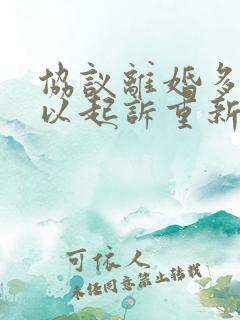 協議離婚多
以起訴重新
可依人
未經同意禁止轉載